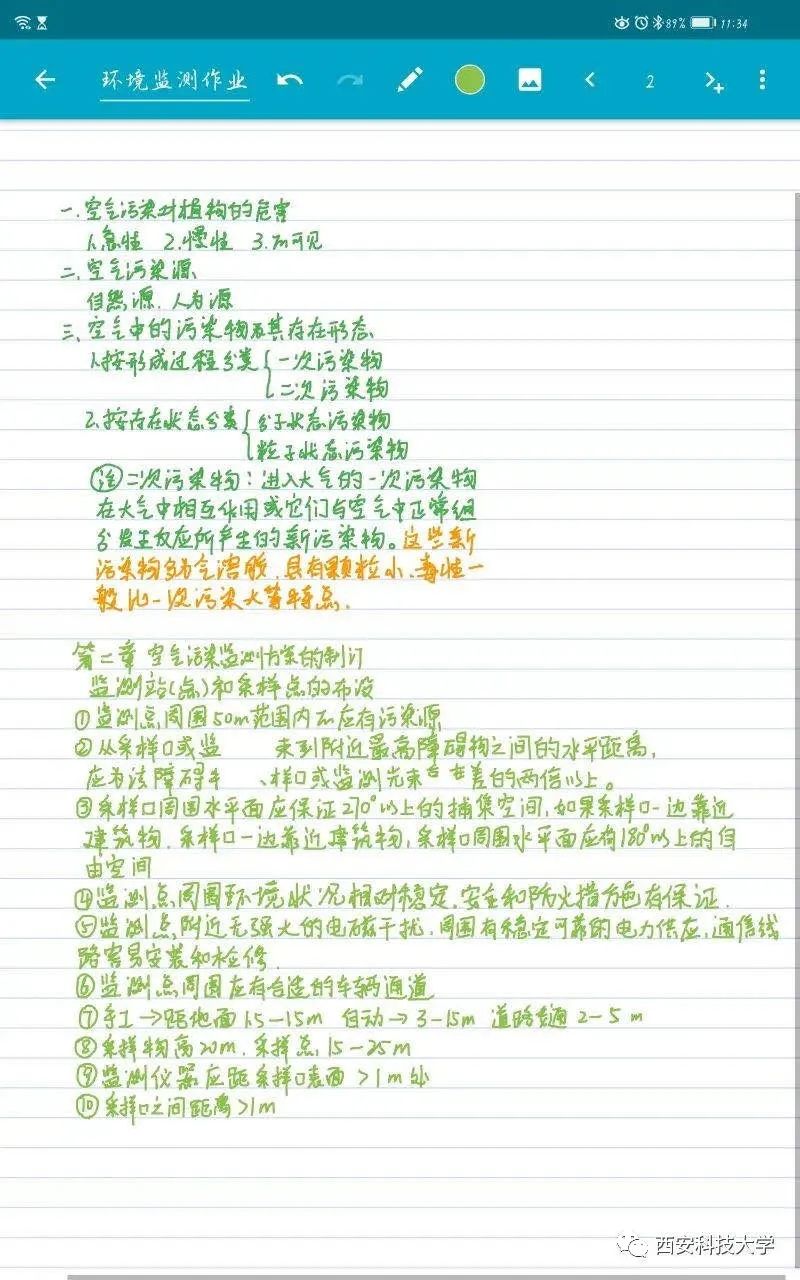 89% 11:34
环境监测作业
2
一.空气污染对植物的危害
1.急性 2.慢性 3.不可见
二.空气污染源
自然源.人为源
三.空气中的污染物及其存在形态
1.按形成过程分类 一次污染物
二次污染物
2.按存在状态分类 分子状态污染物
粒子状态污染物
注 二次污染物:进入大气的一次污染物
在大气中相互作用或它们与空气中正常组
分发生反应所产生的新污染物。这些新
污染物多为气溶胶.具有颗粒小.毒性一
般比一次污染大等特点.
第二章 空气污染监测方案的制订
监测站(点)和采样点的布设
①监测点周围50m范围内不应有污染源
②从采样口或监 束到附近最高障碍物之间的水平距离,
应为该障碍 样口或监测光束 差的两倍以上。
③采样口周围水平面应保证270°以上的捕集空间,如果采样口一边靠近
建筑物.采样口一边靠近建筑物,采样口周围水平面应有180°以上的自
由空间
④监测点周围环境状况相对稳定.安全和防火措施有保证.
⑤监测点附近无强大的电磁干扰.周围有稳定可靠的电力供应,通信线
路容易安装和检修.
⑥监测点周围应有合适的车辆通道
⑦手工→距地面1.5-15m 自动→3-15m 道路交通 2-5m
⑧采样物高20m.采样点15-25m
⑨监测仪器应距采样口表面 >1m处
⑩采样口之间距离>1m
西安科技大学